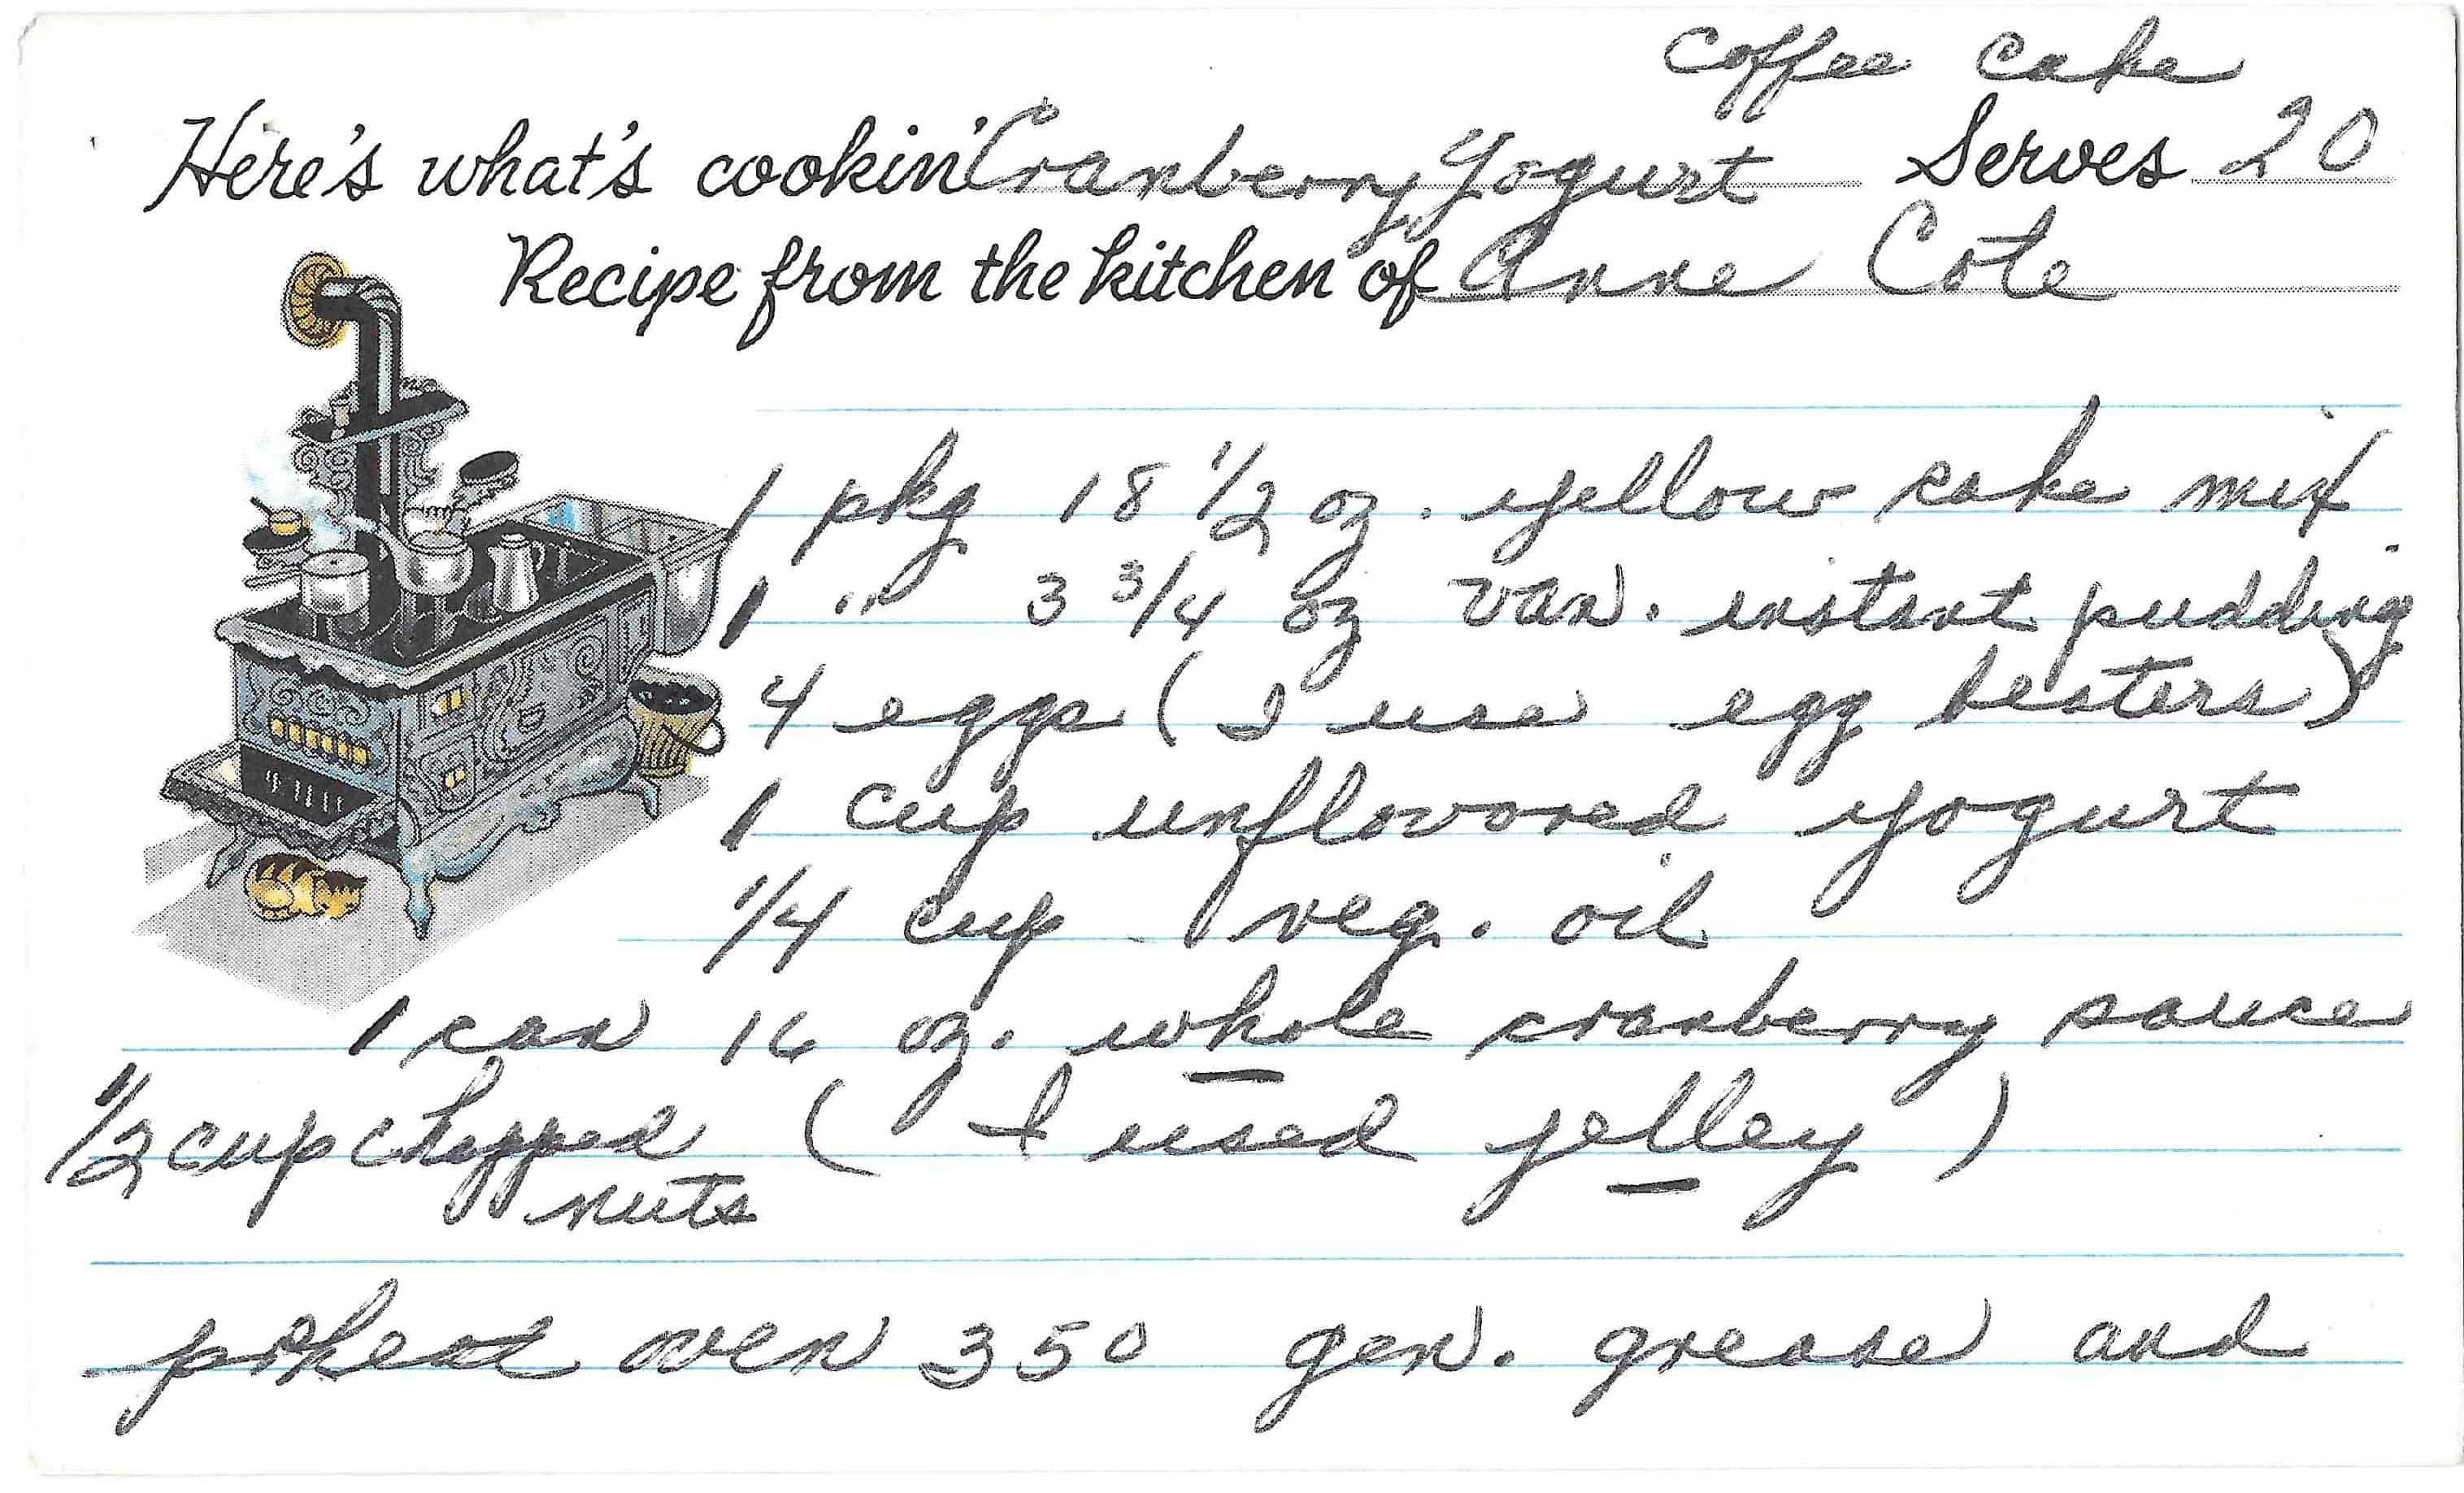 coffee cake
Here's what's cookin' Cranberry Yogurt Serves 20
Recipe from the kitchen of Anne Cote
1 pkg 18 1/2 oz. yellow cake mix
1 " 3 3/4 oz van. instant pudding
4 eggs (I use egg besters)
1 cup unflovored yogurt
1/4 cup veg. oil
1 can 16 oz. whole cranberry sauce
1/2 cup chopped ( I used jelley )
nuts
preheat oven 350 gen. grease and